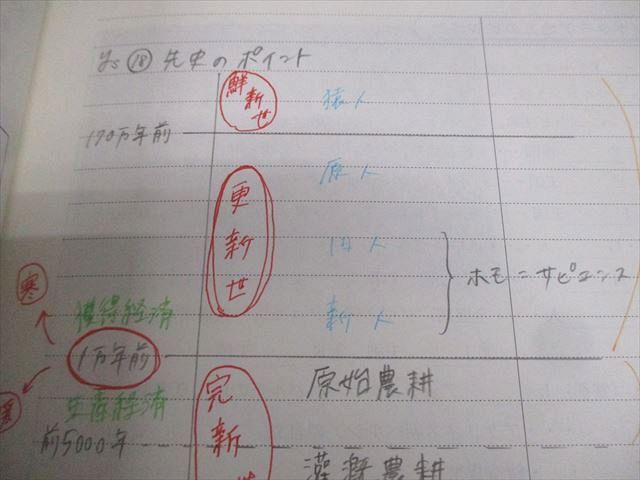 ⑱ 先史のポイント
鮮新世
猿人
170万年前
原人
更新世
旧人
ホモ＝サピエンス
寒
獲得経済
新人
1万年前
原始農耕
生産経済
完新世
前5000年
灌漑農耕